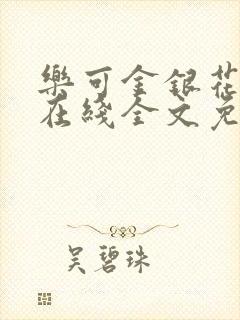 樂可金銀花
在綫全文免
吳碧珠